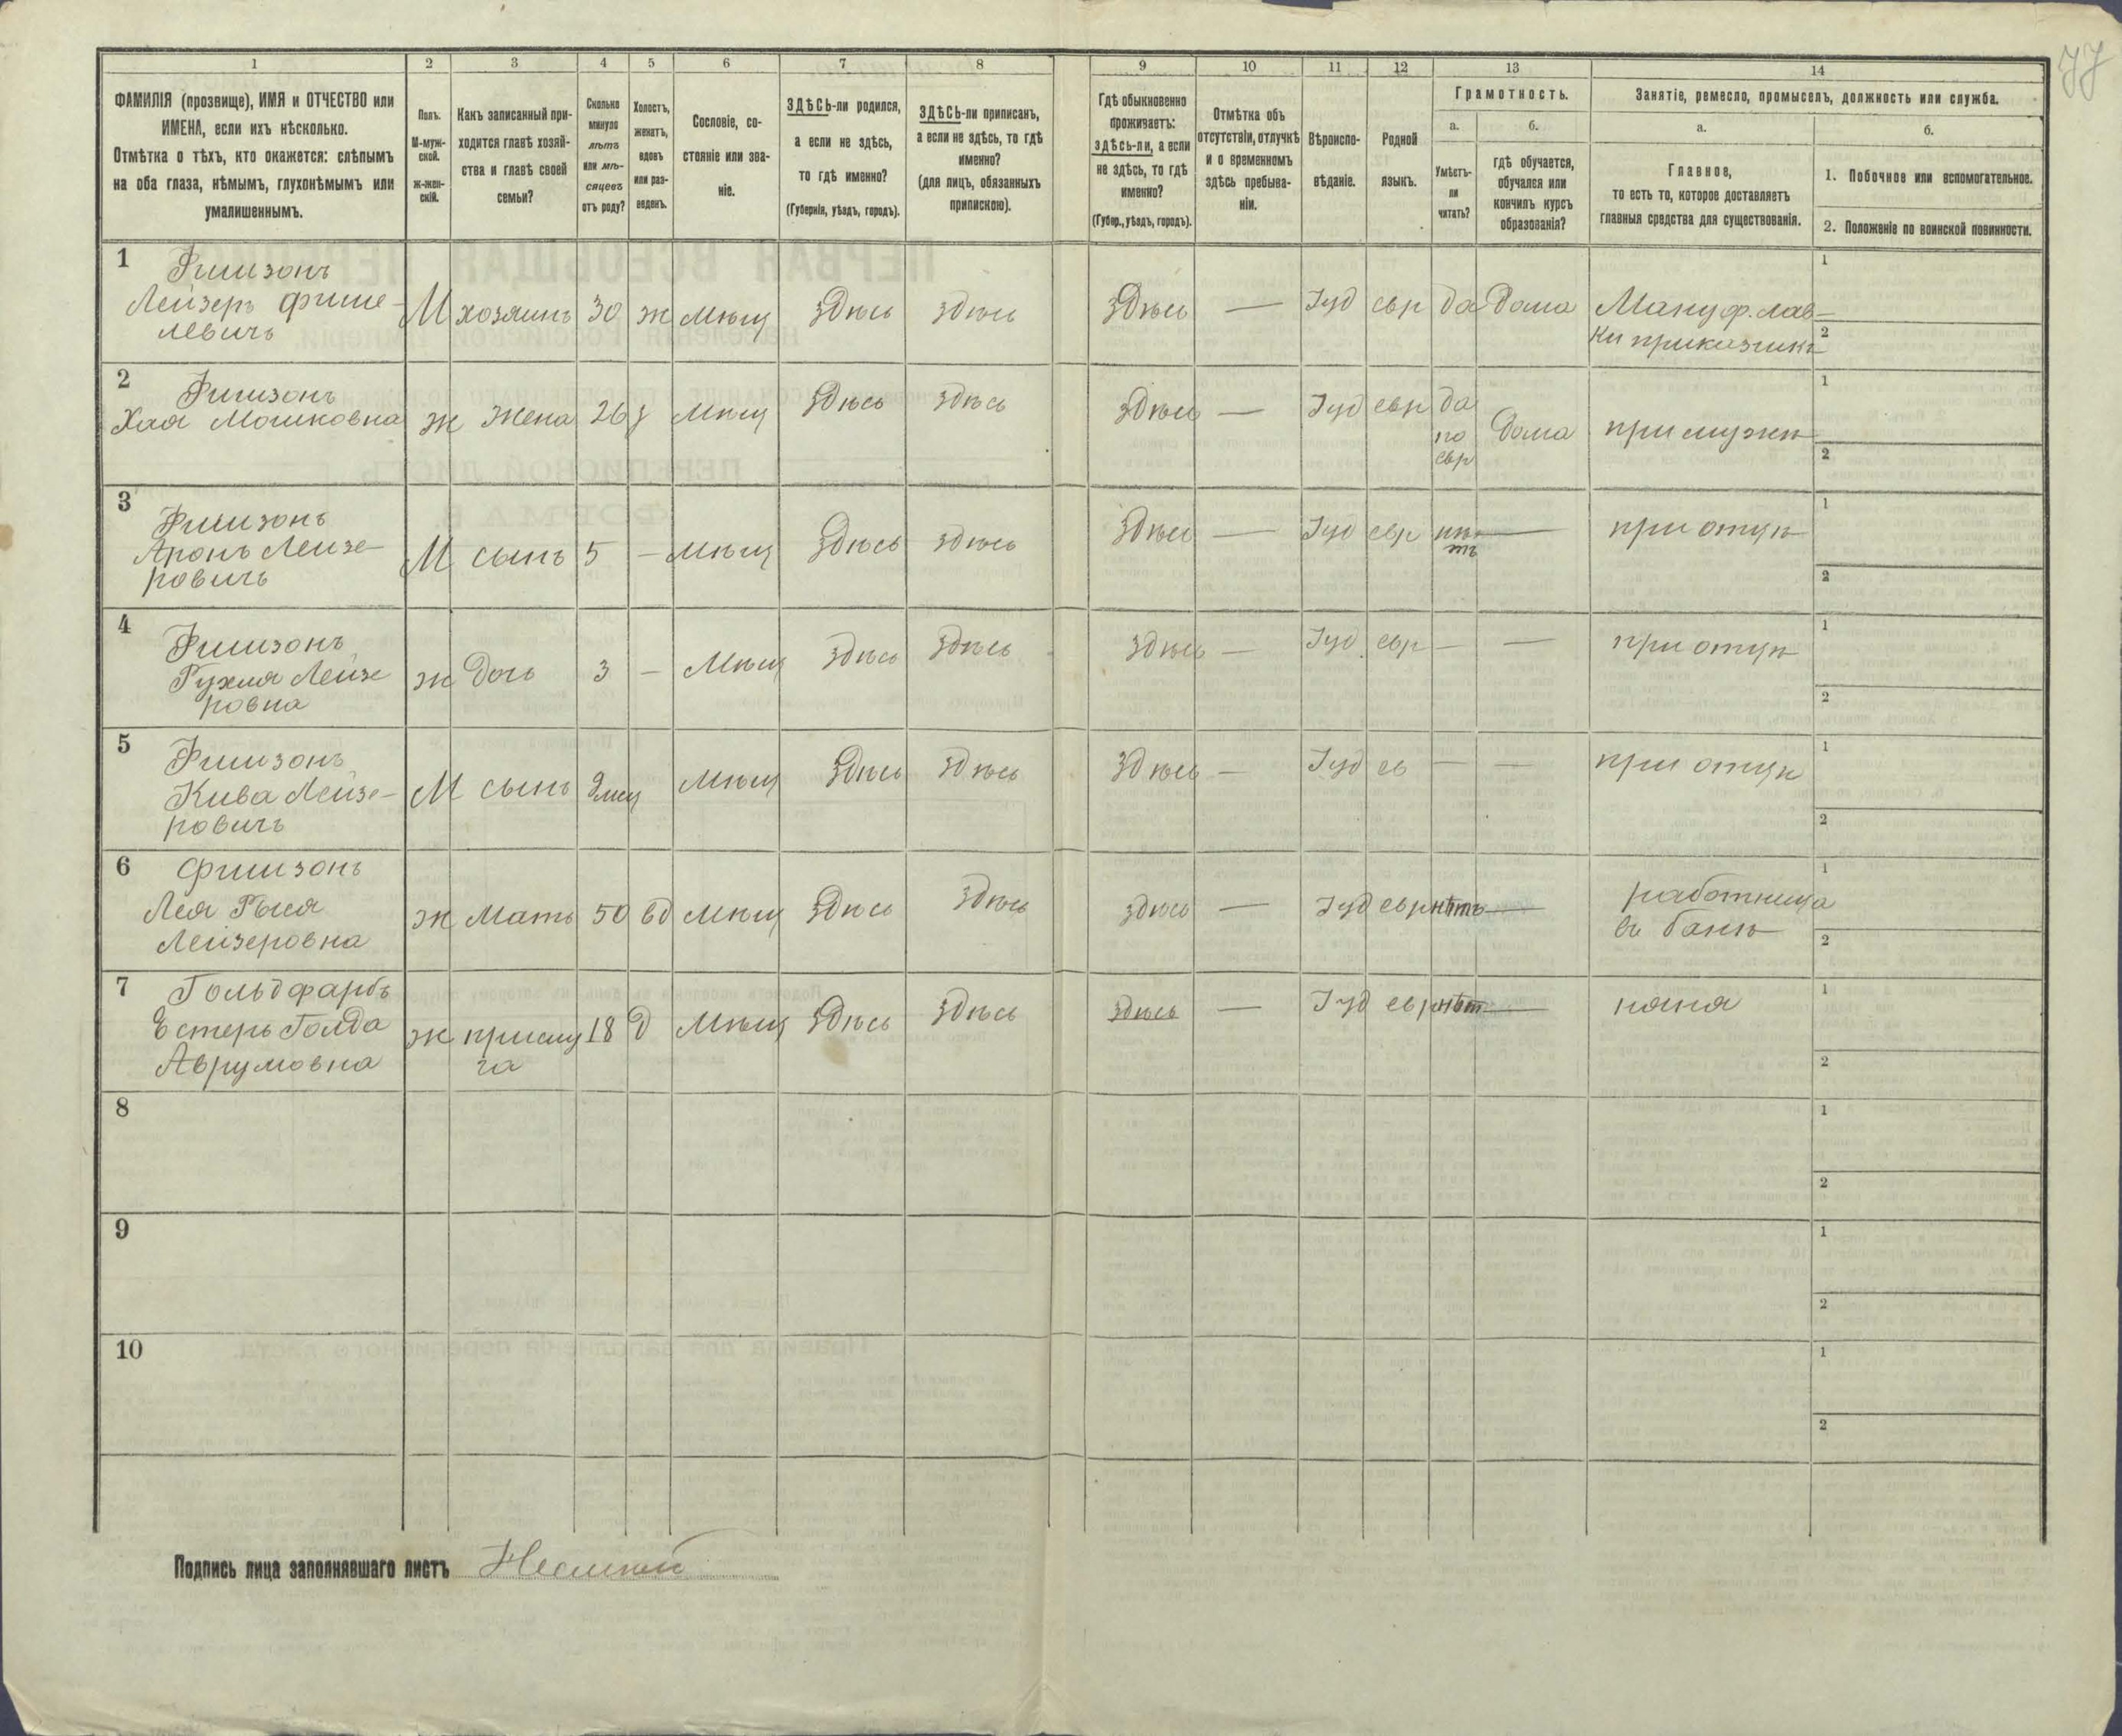 77
1 2 3 4 5 6 7 8 9 10 11 12 13 14
ФАМИЛІЯ (прозвище), ИМЯ и ОТЧЕСТВО или
ИМЕНА, если ихъ нѣсколько.
Отмѣтка о тѣхъ, кто окажется: слѣпымъ
на оба глаза, нѣмымъ, глухонѣмымъ или
умалишеннымъ.
Полъ.
М-муж-
ской.
ж-жен-
скій.
Какъ записанный при-
ходится главѣ хозяй-
ства и главѣ своей
семьи?
Сколько
минуло
лѣтъ
или мѣ-
сяцевъ
отъ роду?
Холостъ,
женатъ,
вдовъ
или раз-
веденъ.
Сословіе, со-
стояніе или зва-
ніе.
ЗДѢСЬ-ли родился,
а если не здѣсь,
то гдѣ именно?
(Губернія, уѣздъ, городъ).
ЗДѢСЬ-ли приписанъ,
а если не здѣсь, то гдѣ
именно?
(для лицъ, обязанныхъ
припискою).
Гдѣ обыкновенно
проживаетъ:
здѣсь-ли, а если
не здѣсь, то гдѣ
именно?
(Губер., уѣздъ, городъ).
Отмѣтка объ
отсутствіи, отлучкѣ
и о временномъ
здѣсь пребыва-
ніи.
Вѣроиспо-
вѣданіе.
Родной
языкъ.
Грамотность.
а.
Умѣетъ-
ли
читать?
б.
гдѣ обучается,
обучался или
кончилъ курсъ
образованія?
Занятіе, ремесло, промыселъ, должность или служба.
а.
Главное,
то есть то, которое доставляетъ
главныя средства для существованія.
б.
1. Побочное или вспомогательное.
2. Положеніе по воинской повинности.
1 Фишзонъ
Лейзеръ Фише-
левичъ
М хозяинъ 30 ж мѣщ здѣсь здѣсь здѣсь — Іуд евр да дома Мануф. лав-
ки приказчикъ
1
2
2 Фишзонъ
Хая Мошковна
ж жена 26 з мѣщ здѣсь здѣсь здѣсь — Іуд евр да
по
евр
дома при мужѣ
1
2
3 Фишзонъ
Аронъ Лейзе-
ровичъ
М сынъ 5 — мѣщ здѣсь здѣсь здѣсь — Іуд евр нѣ-
тъ
— при отцѣ
1
2
4 Фишзонъ
Рухля Лейзе
ровна
ж дочь 3 — мѣщ здѣсь здѣсь здѣсь — Іуд евр — — при отцѣ
1
2
5 Фишзонъ
Кива Лейзе-
ровичъ
М сынъ мѣщ здѣсь здѣсь здѣсь — Іуд ев — — при отцѣ
1
2
6 Фишзонъ
Лея Рыся
Лейзеровна
ж мать 50 вд мѣщ здѣсь здѣсь здѣсь — Іуд евр нѣтъ — работница
въ банѣ
1
2
7 Гольдфарбъ
Естеръ Голда
Аврумовна
ж прислу
га
18 д мѣщ здѣсь здѣсь здѣсь — Іуд евр нѣт — няня
1
2
8
1
2
9
1
2
10
1
2
Подпись лица заполнявшаго листъ